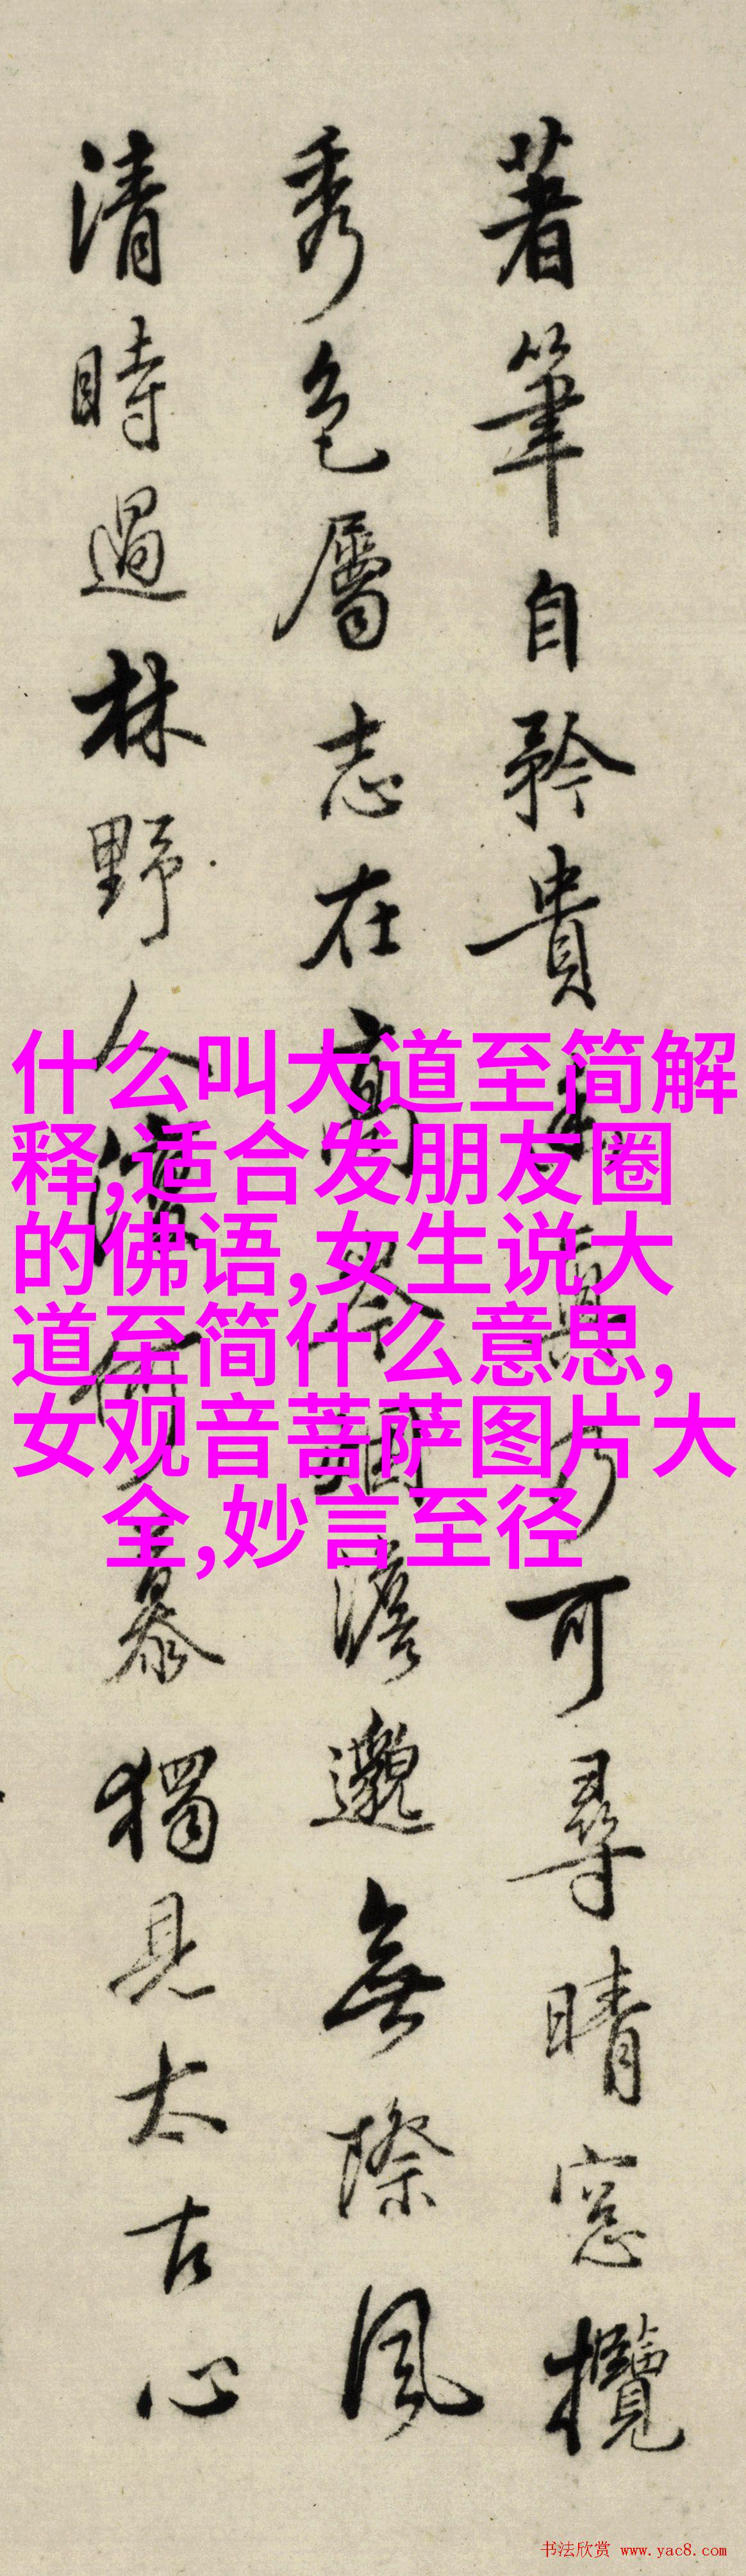 著筆自矜貴真乃可尋晴窓攬
秀色屬志在高岑烟澹邈無際風
清時過林野人何慕獨見太古心
什么叫大道至简解
释,适合发朋友圈
的佛语,女生说大
道至简什么意思,
女观音菩萨图片大
全,妙言至径
书法欣赏 www.yac8.com